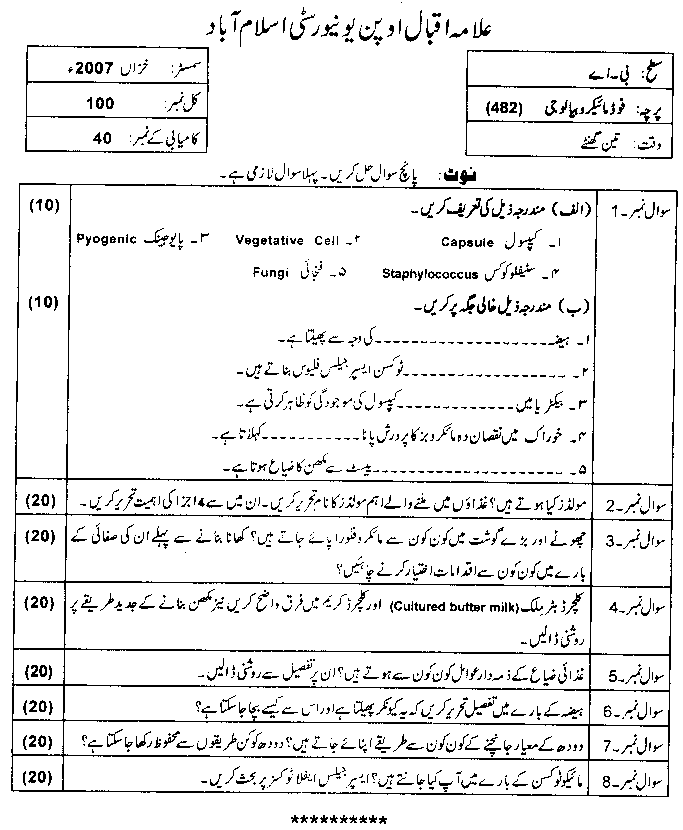 علامہ اقبال اوپن یونیورسٹی اسلام آباد
سطح: بی۔اے
پرچہ: فوڈ مائیکروبیالوجی (482)
وقت: تین گھنٹے
سمسٹر: خزاں 2007ء
کل نمبر: 100
کامیابی کے نمبر: 40
نوٹ: پانچ سوال حل کریں۔ پہلا سوال لازمی ہے۔
سوال نمبر۔1 (الف) مندرجہ ذیل کی تعریف کریں۔ (10)
۱۔ کیپسول Capsule ۲۔ Vegetative Cell ۳۔ پایوجینک Pyogenic
۴۔ سٹیفلوکوکس Staphylococcus ۵۔ فنجائی Fungi
(ب) مندرجہ ذیل خالی جگہ پر کریں۔ (10)
۱۔ ہیضہ--------------------کی وجہ سے پھیلتا ہے۔
۲۔ --------------------ٹوکسن ایسپرجیلس فلیوس بناتے ہیں۔
۳۔ بیکٹریا میں--------------کیپسول کی موجودگی کو ظاہر کرتی ہے۔
۴۔ خوراک میں نقصان دہ مائکروبز کا پرورش پانا-----------کہلاتا ہے۔
۵۔ --------------------ہیٹ سے مکھن کا ضیاع ہوتا ہے۔
سوال نمبر۔2 مولڈز کیا ہوتے ہیں؟ غذاؤں میں ملنے والے اہم مولڈز کا نام تحریر کریں۔ ان میں سے 4 اجزا کی اہمیت تحریر کریں۔ (20)
سوال نمبر۔3 چھوٹے اور بڑے گوشت میں کون کون سے مائکروفلورا پائے جاتے ہیں؟ کھانا بنانے سے پہلے ان کی صفائی کے (20)
بارے میں کون کون سے اقدامات اختیار کرنے چاہئیں؟
سوال نمبر۔4 کلچرڈ بٹر ملک (Cultured butter milk) اور کلچرڈ کریم میں فرق واضح کریں نیز مکھن بنانے کے جدید طریقے پر (20)
روشنی ڈالیں۔
سوال نمبر۔5 غذائی ضیاع کے ذمہ دار عوامل کون کون سے ہوتے ہیں؟ ان پر تفصیل سے روشنی ڈالیں۔ (20)
سوال نمبر۔6 ہیضہ کے بارے میں تفصیل تحریر کریں کہ یہ کیونکر پھیلتا ہے اور اس سے کیسے بچا جا سکتا ہے؟ (20)
سوال نمبر۔7 دودھ کے معیار جانچنے کے کون کون سے طریقے اپنائے جاتے ہیں؟ دودھ کو کن طریقوں سے محفوظ رکھا جا سکتا ہے؟ (20)
سوال نمبر۔8 مائیکوٹوکسن کے بارے میں آپ کیا جانتے ہیں؟ ایسپرجیلس ایفلاٹوکسنز پر بحث کریں۔ (20)
**********